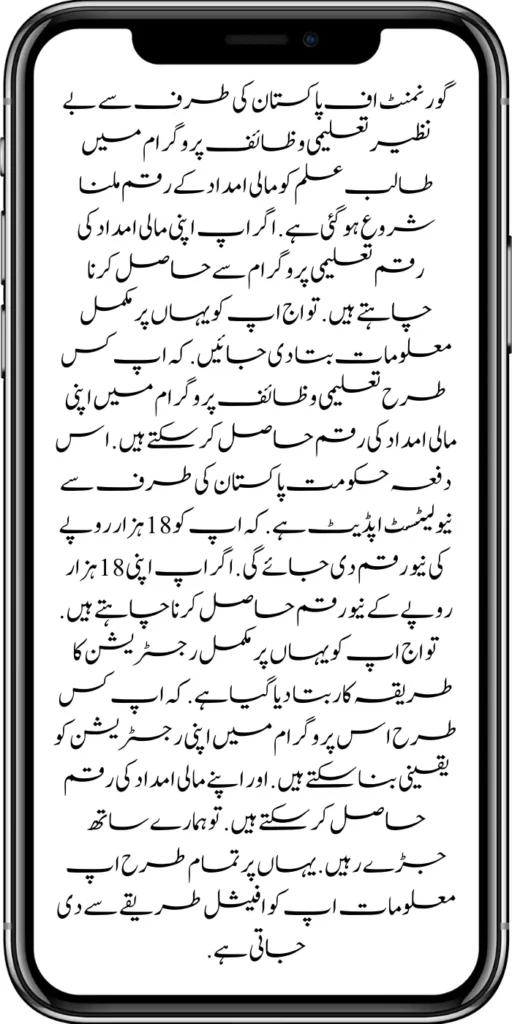 گورنمنٹ اف پاکستان کی طرف سے بے
نظیر تعلیمی وظائف پروگرام میں
طالب علم کو مالی امداد کے رقم ملنا
شروع ہو گئی ہے. اگر اپ اپنی مالی امداد کی
رقم تعلیمی پروگرام سے حاصل کرنا
چاہتے ہیں. تو اج اپ کو یہاں پر مکمل
معلومات بتا دی جائیں. کہ اپ کس
طرح تعلیمی وظائف پروگرام میں اپنی
مالی امداد کی رقم حاصل کر سکتے ہیں. اس
دفعہ حکومت پاکستان کی طرف سے
نیو لیٹسٹ اپڈیٹ ہے. کہ اپ کو 18 ہزار روپے
کی نیو رقم دی جائے گی. اگر اپ اپنی 18 ہزار
روپے کے نیو رقم حاصل کرنا چاہتے ہیں.
تو اج اپ کو یہاں پر مکمل رجسٹریشن کا
طریقہ کار بتا دیا گیا ہے. کہ اپ کس
طرح اس پروگرام میں اپنی رجسٹریشن کو
یقینی بنا سکتے ہیں. اور اپنے مالی امداد کی رقم
حاصل کر سکتے ہیں. تو ہمارے ساتھ
جڑے رہیں. یہاں پر تمام طرح اپ
معلومات اپ کو افیشل طریقے سے دی
جاتی ہے.